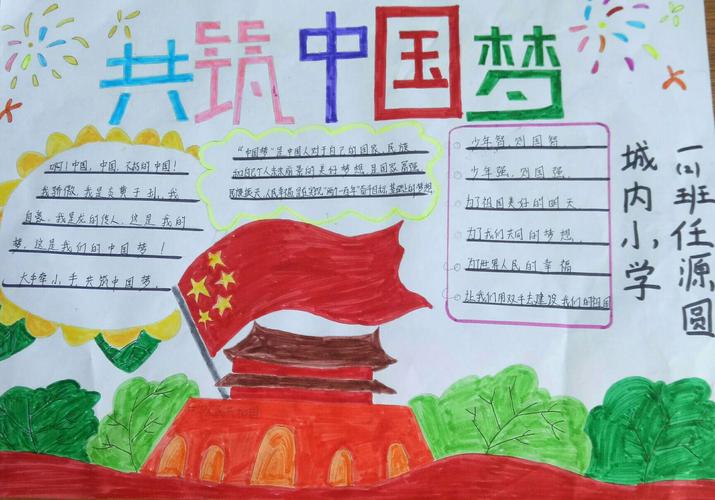 共筑中国梦
啊!中国,中国,不朽的中国!
我骄傲,我是炎黄子孙,我
自豪,我是龙的传人,这是我的
梦,这是我们的中国梦!
大手牵小手共筑中国梦
“中国梦”是中国人对于自己的国家、民族
和自己个人未来前景的美好梦想,是国家富强、
民族振兴、人民幸福,是在实现“两个一百年”奋斗目标,基础上的梦想
少年智,则国智
少年强,则国强,
为祖国美好的明天
为了我们共同的梦想,
为世界人民的幸福
让我们用双手去建设我们的祖国
一(2)班任源圆
城内小学